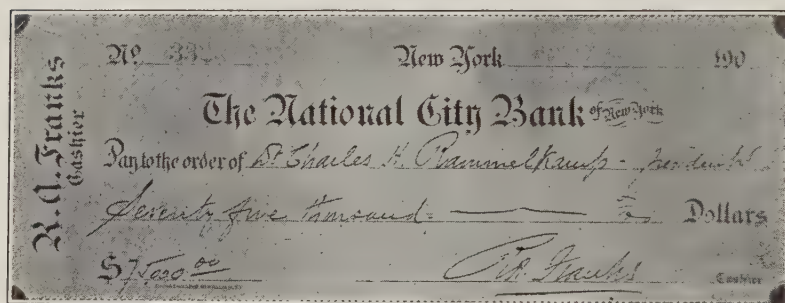 R. A. Franks
Cashier
No 33
New York 190
The National City Bank of New York
Pay to the order of Dr Charles H. Rammelkamp - President
Seventy five thousand Dollars
$75,000 00
R. A. Franks
Cashier